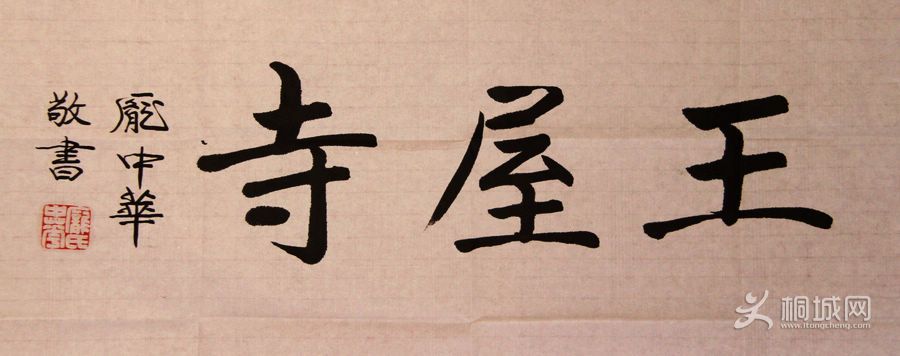 王屋寺
龐中華
敬書
桐城网
www.itongcheng.com